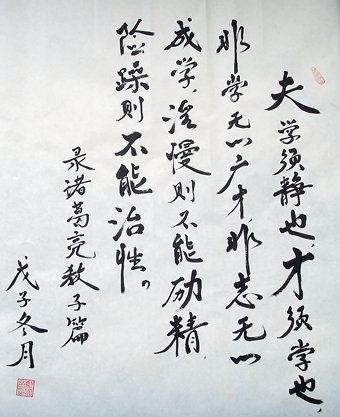 夫学须静也,才须学也,
非学无以广才,非志无以
成学,淫慢则不能励精,
险躁则不能治性。
录诸葛亮教子篇
戊子冬月